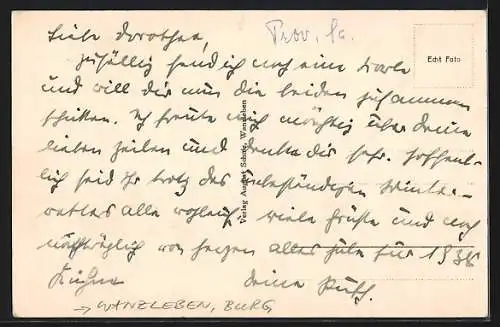 Prov. Sa.
Echt Foto
Liebe Dorothee,
zufällig fand ich noch eine Karte
und will dir nun die beiden zusammen
schicken. Ich freute mich mächtig über deine
lieben Zeilen und danke dir sehr. Hoffent-
lich seid Ihr trotz des unbeständigen Winter-
wetters alle wohlauf. Viele Grüße und noch
nachträglich von Herzen alles Gute für 1938
deine
Verlag August Scholz, Wanzleben
→ WANZLEBEN, BURG